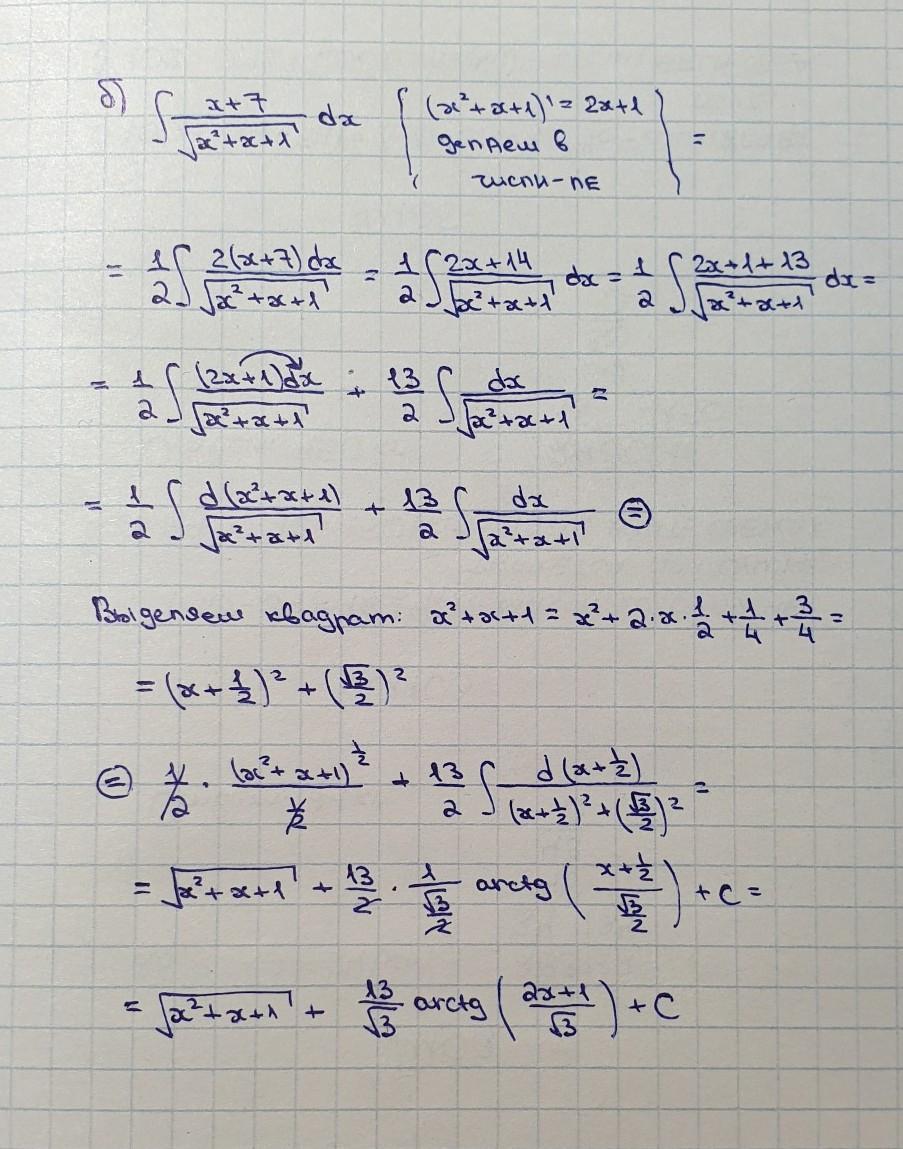 б) ∫ (x+7)/√(x²+x+1) dx { (x²+x+1)' = 2x+1
делаем в
числи-ле } =
= 1/2 ∫ 2(x+7)dx/√(x²+x+1) = 1/2 ∫ (2x+14)/√(x²+x+1) dx = 1/2 ∫ (2x+1+13)/√(x²+x+1) dx =
= 1/2 ∫ (2x+1)dx/√(x²+x+1) + 13/2 ∫ dx/√(x²+x+1) =
= 1/2 ∫ d(x²+x+1)/√(x²+x+1) + 13/2 ∫ dx/√(x²+x+1) ⊜
Выделяем квадрат: x²+x+1 = x²+2·x·1/2+1/4+3/4 =
= (x+1/2)² + (√3/2)²
⊜ 1/2 · (x²+x+1)^(1/2)/(1/2) + 13/2 ∫ d(x+1/2)/((x+1/2)²+(√3/2)²) =
= √(x²+x+1) + 13/2 · 1/(√3/2) arctg((x+1/2)/(√3/2)) + C =
= √(x²+x+1) + 13/√3 arctg((2x+1)/√3) + C